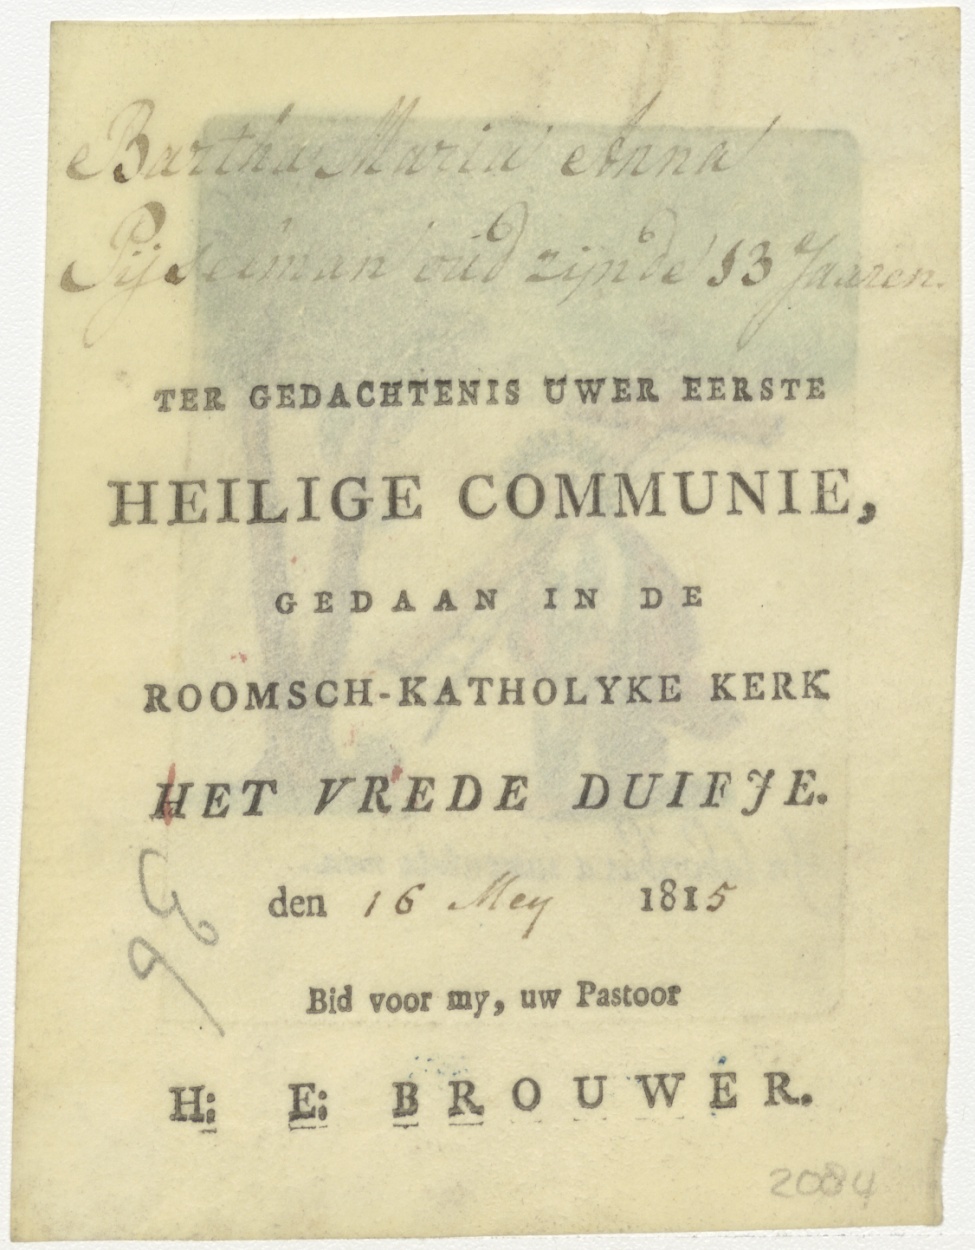 Bartha Maria Anna
oud zijnde 13 Jaaren.
TER GEDACHTENIS UWER EERSTE
HEILIGE COMMUNIE,
GEDAAN IN DE
ROOMSCH-KATHOLYKE KERK
HET VREDE DUIFJE.
den 16 Mey 1815
Bid voor my, uw Pastoor
H: E: BROUWER.
2084